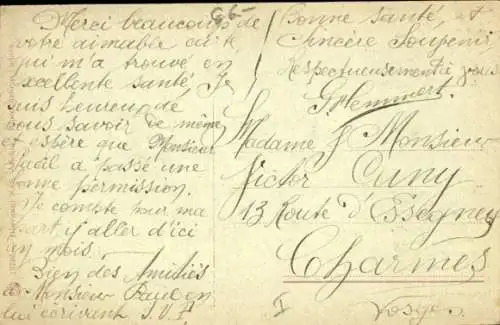 Merci beaucoup de
votre aimable carte
qui m'a trouvé en
excellente santé, Je
suis heureux de
vous savoir de même
et espère que Monsieur
a passé une
bonne permission.
Je compte pour ma
part y aller d'ici
un mois.
Bien des Amitiés
à Monsieur Paul en
lui écrivant S.V.P.
Bonne santé, et
Sincère Souvenir
Respectueusement à vous
Madame & Monsieur
Victor Cuny
13 Route d'Essegney
Charmes
Vosges
I